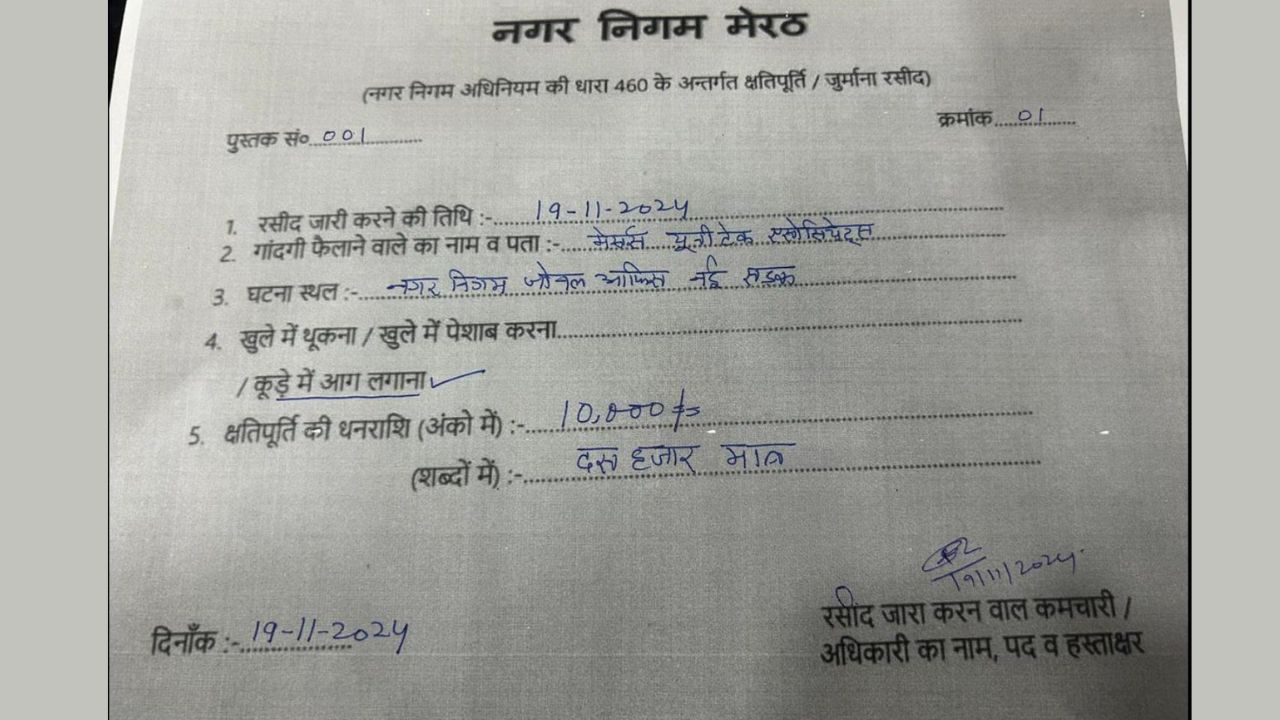 नगर निगम मेरठ
(नगर निगम अधिनियम की धारा 460 के अन्तर्गत क्षतिपूर्ति / जुर्माना रसीद)
पुस्तक सं० 001
क्रमांक 01
1. रसीद जारी करने की तिथि :- 19-11-2024
2. गांदगी फैलाने वाले का नाम व पता :- मेसर्स यूनीटेक एसोसिएट्स
3. घटना स्थल :- नगर निगम जोनल आफिस नई सड़क
4. खुले में थूकना / खुले में पेशाब करना
/ कूड़े में आग लगाना ✓
5. क्षतिपूर्ति की धनराशि (अंको में) :- 10,000/=
(शब्दों में) :- दस हजार मात्र
19/11/2024
रसींद जारा करन वाल कमचारी /
दिनाँक :- 19-11-2024
अधिकारी का नाम, पद व हस्ताक्षर